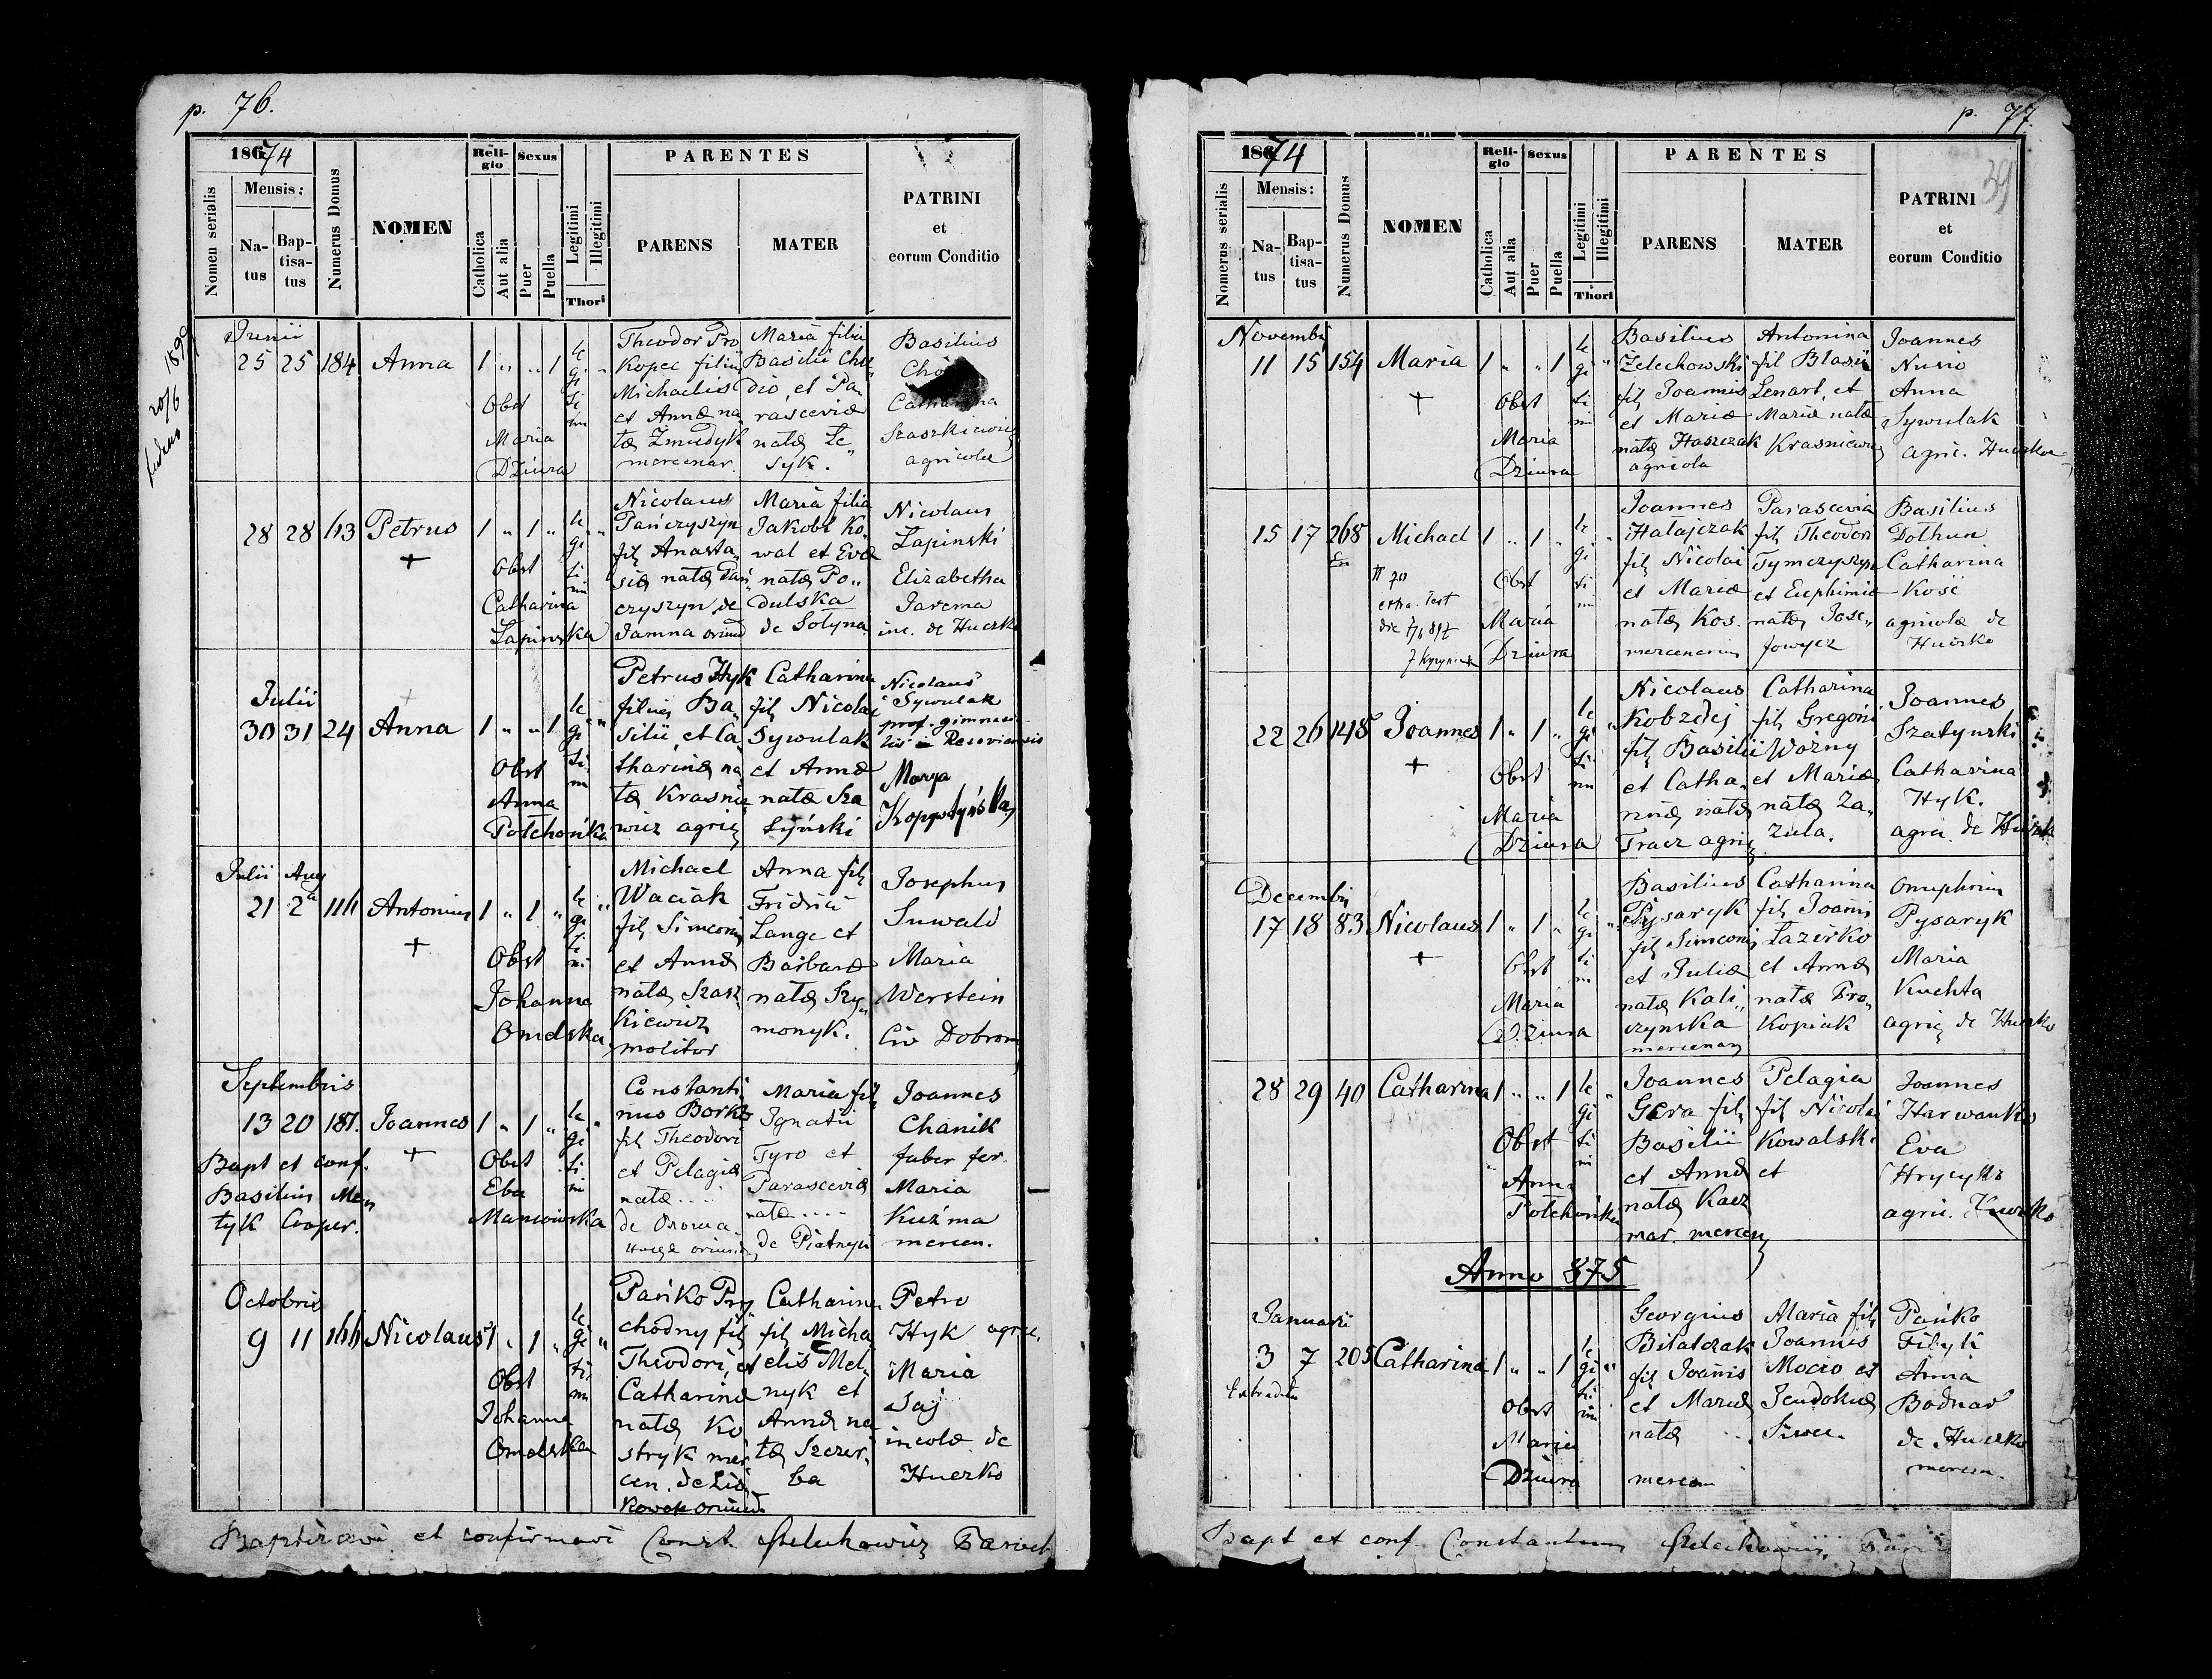 p. 76.
1874
Nomen serialis
Mensis:
Natus
Baptisatus
Numerus Domus
NOMEN
Religio
Catholica
Aut alia
Sexus
Puer
Puella
Legitimi
Illegitimi
Thori
PARENTES
PARENS
MATER
PATRINI
et
eorum Conditio
20/6 1899
Junii
25 25 184 Anna 1 " " 1 legitimi "
Obst
Maria
Dziura
Theodor Pro
kopec filius
Michaelis
et Annæ na
tæ Zmudyk
mercenar.
Maria filia
Basilii Cho
dio, et Pa
rasceviæ
natæ Le
syk.
Basilius
Catharina
Szaszkiewicz
agricolæ
28 28 113 Petrus 1 " 1 " legitimi "
+
Obst
Catharina
Lapinska
Nicolaus
Pańczyszyn
fil. Anasta
siæ natæ Pań
czyszyn de
Jamna oriund
Maria filia
Jakobi Ko
wal et Evæ
natæ Po"
dulska
de Solyna.
Nicolaus
Lapinski
Elizabetha
Jarema
inc. de Huczko
Julii
30 31 24 Anna 1 " " 1 legitimi "
Obst
Anna
Potchońka
Petrus Hyk
filius Ba
silii, et Ca
tharinæ na
tæ Krasnie
wicz agric
Catharina
fil. Nicolai
Sywulak
et Annæ
natæ Sza
tyński
Nicolaus
Sywulak
prof. gimnasia
lis in Resoviensis
Marya
Kopystyńska
Julii Aug
21 2 116 Antonius 1 " 1 " legitimi "
+
Obst
Johanna
Omelska
Michael
Waciak
fil. Simeonis
et Annæ
natæ Szasz
kiewicz
molitor
Anna fil.
Fridrici
Lange et
Barbaræ
natæ Szy"
monyk.
Josephus
Suwald
Maria
Werstein
Civ Dobrom
Septembris
13 20 187. Joannes 1 " 1 " legitimi "
Bapt et conf.
Basilius Men
tyk Cooper.
+
Obst
Eva
Constanti
nus Borko
fil Theodori
et Pelagiæ
natæ....
Maria fil.
Ignatii
Tyro et
Parasceviæ
natæ....
de Piatnyci
Joannes
Chanik
faber fer.
Maria
Kuźma
mercen.
Octobris
9 11 166 Nicolaus 1 " 1 " legitimi "
Obst
Johanna
Omelska
Pańko Pry
chodny fil
Theodori, et
Catharinæ
natæ Ko
stryk mer
cen. de Lis
kowate oriund
Catharina
fil. Micha
elis Mel
nyk et
Annæ na
tæ Szczer
ba
Petro
Hyk agric.
Maria
Saj
incolæ de
Huczko
Baptizavi et confirmavi Const. Paroch
p. 77.
39
1874
Nomerus serialis
Mensis:
Natus
Baptisatus
Numerus Domus
NOMEN
Religio
Catholica
Aut alia
Sexus
Puer
Puella
Legitimi
Illegitimi
Thori
PARENTES
PARENS
MATER
PATRINI
et
eorum Conditio
Novembr
11 15 154 Maria 1 " " 1 legitimi "
+
Obst
Maria
Dziura
Basilius
Zelechowski
fil. Joannis
et Mariæ
natæ Haszczak
agricola
Antonina
fil Blasii
Lenart, et
Mariæ natæ
Krasniewicz
Joannes
Nusio
Anna
Sywulak
agric. Huczko
15 17 268 Michael 1 " 1 " legitimi "
Obst
Maria
Dziura
Joannes
Hatajczak
fil. Nicolai
et Mariæ
natæ Kos.
mercenarius
Parascevia
fil. Theodori
Tymczyszyn
et Euphimiæ
natæ Jose"
fowycz
Basilius
Dothun
Catharina
Kość
agricolæ de
Huczko
22 26 148 Joannes 1 " 1 " legitimi "
+
Obst
Maria
Dziura
Nicolaus
Kobzdej
fil. Basilii
et Catha
rinæ natæ
Tracz agric
Catharina
fil. Gregorii
Woźny
et Mariæ
natæ Za"
zula.
Joannes
Szatynski
Catharina
Hyk.
agric. de Huczko
Decembris
17 18 83 Nicolaus 1 " 1 " legitimi "
+
Obst
Maria
Dziura
Basilius
Pysaryk
fil Simeonis
et Juliæ
natæ Kali"
czynska
mercenar
Catharina
fil. Joannis
Lazirko
et Annæ
natæ Pro"
kopiak
Onuphrius
Pysaryk
Maria
Kuchta
agric de Huczko
28 29 40 Catharina 1 " " 1 legitimi "
Obst
Anna
Potchońka
Joannes
Gera fil.
Basilii
et Annæ
natæ Kacz
mar. mercen
Pelagia
fil. Nicolai
Kowalski
et
Joannes
Harwanko
Eva
Hrycyko
agric. Huczko
Anno 875
Januarii
3 7 205 Catharina 1 " " 1 legitimi "
Extradita
Obst
Maria
Dziura
Georgius
Bilalczak
fil. Joannis
et Mariæ
natæ ...
mercen
Maria fil.
Joannis
Mocio et
Jeudokiæ
Siwer.
Pańko
Filyk
Anna
Bodnar
de Huczko
mercen.
Bapt et conf. Constantinus